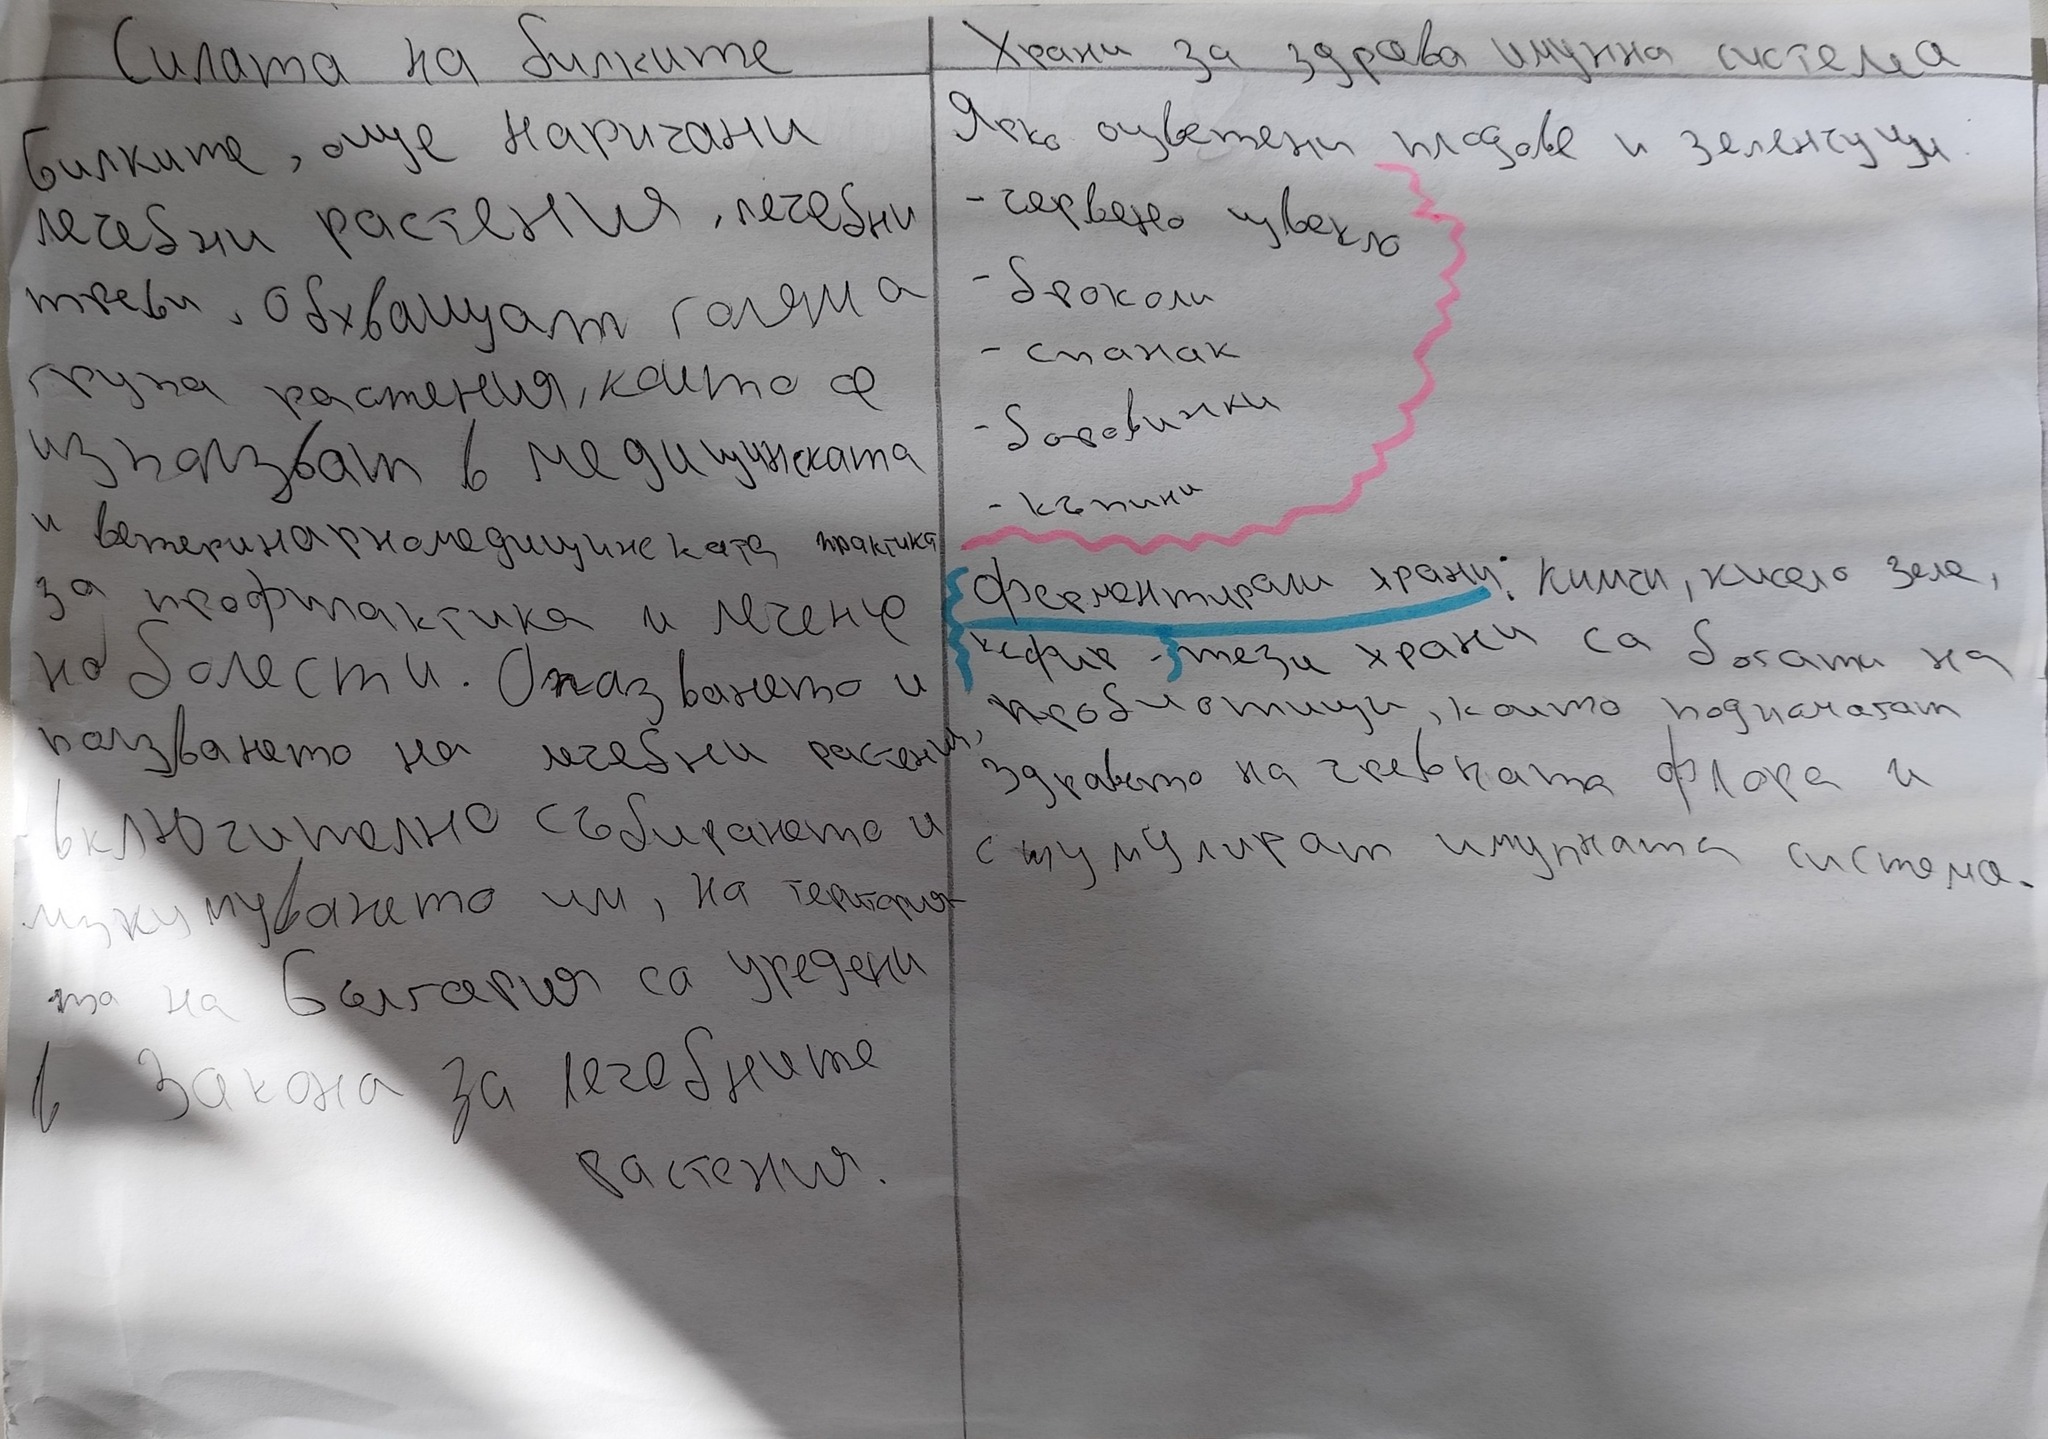 Силата на билките
билките, още наричани
лечебни растения, лечебни
треви, обхващат голяма
група растения, които се
използват в медицинската
и ветеринарномедицинската практика
за профилактика и лечение
на болести. Опазването и
ползването на лечебни растения,
включително събирането и
изкупуването им, на територия
та на България са уредени
в Закона за лечебните
растения.
Храни за здрава имунна система
Ярко оцветени плодове и зеленчуци.
- червено цвекло
- броколи
- спанак
- боровинки
- къпини
ферментирали храни: кимчи, кисело зеле,
кефир - тези храни са богати на
пробиотици, които подпомагат
здравето на чревната флора и
стумулират имунната система.